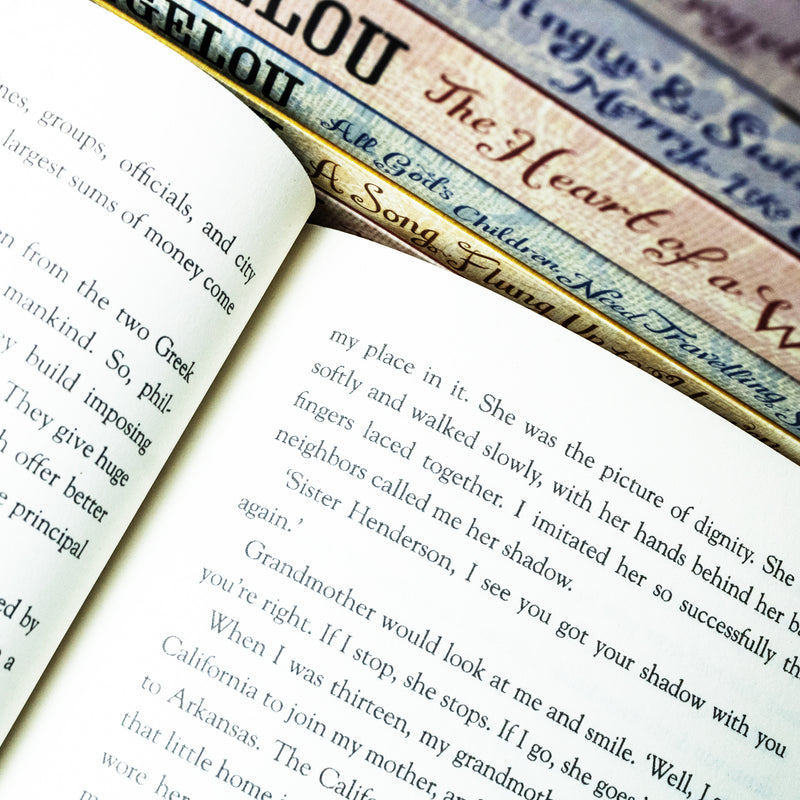 ELOU
GELOU
The Heart of a W
Singin' & Swin
Merry Like C
All God's Children Need Travelling S
A Song Flung Up to H
nes, groups, officials, and city
largest sums of money come
en from the two Greek
mankind. So, phil-
ey build imposing
They give huge
h offer better
e principal
ed by
a
my place in it. She was the picture of dignity. She
softly and walked slowly, with her hands behind her b
fingers laced together. I imitated her so successfully th
neighbors called me her shadow.
'Sister Henderson, I see you got your shadow with you
again.'
Grandmother would look at me and smile. 'Well, I
you're right. If I stop, she stops. If I go, she goes.'
When I was thirteen, my grandmoth
California to join my mother, an
to Arkansas. The Califo
that little home i
wore her